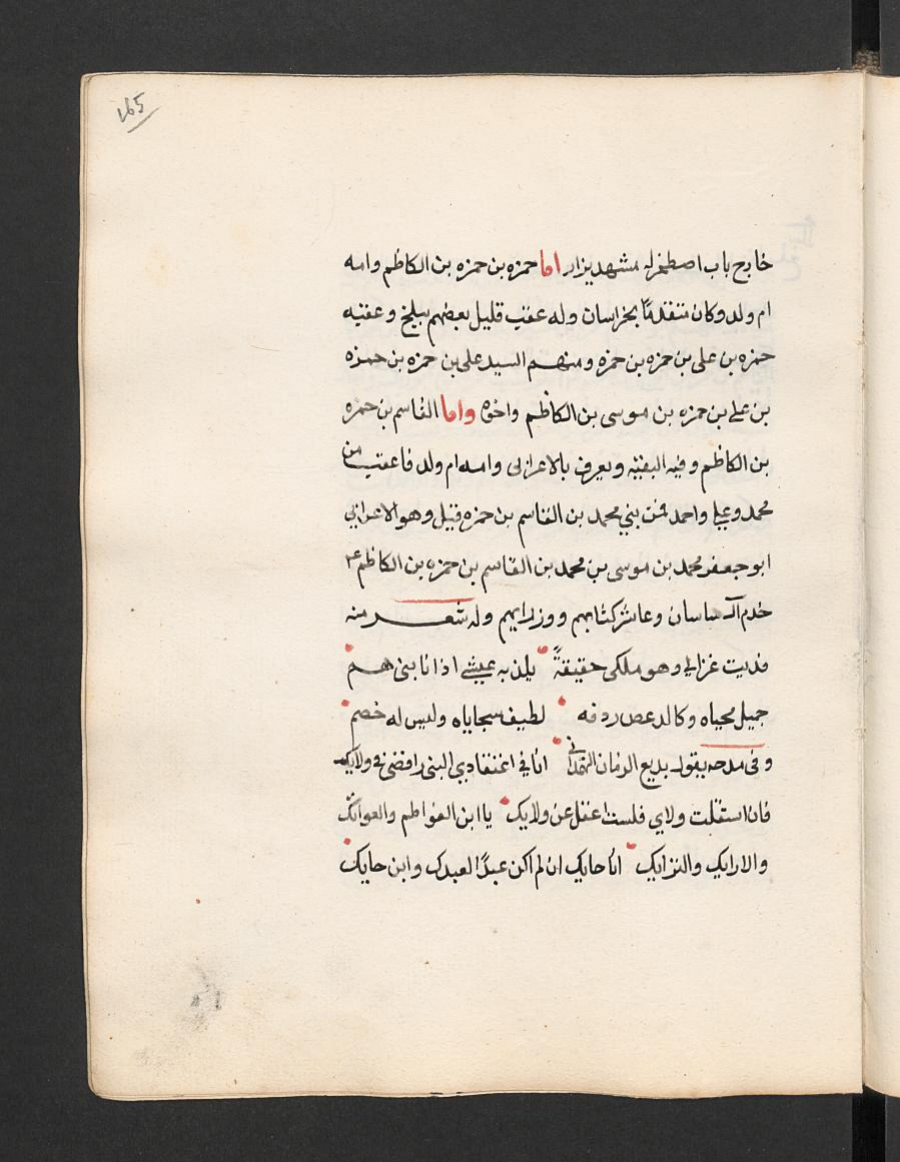 165
خارج باب اصطخر له مشهد يزار اما حمزه بن حمزه بن الكاظم وامه
ام ولد وكان متقدمًا بخراسان وله عقب قليل بعضهم ببلخ وعقبه
حمزه بن على بن حمزه بن حمزه ومنهم السيد على بن حمزه بن حمزه
بن على بن حمزه بن موسى بن الكاظم واخوه واما القاسم بن حمزه
بن الكاظم وفيه البقيّه ويعرف بالاعرابى وامه ام ولد فاعقب من
محمد وعلى واحمد فمن بني محمد بن القاسم بن حمزه قيل وهو الاعرابي
ابو جعفر محمد بن موسى بن محمد بن القاسم بن حمزه بن الكاظم ع
خدم آل ساسان وعاشر كتابهم ووزرايهم وله شعر منه
فديت غزالي وهو ملكى حقيقةً يلذ به عيشي اذا نابنى هم
جميل محياه وكالدعص ردفه لطيف سجاياه وليس له خصم
وفى مدحه يقول بديع الزمان الهمدانى انا في اعتقادي التسنن رافضى في ولايك
فان اشتغلت ولاي فلست اغفل عن ولايك يا ابن الفواطم والعواتك
والارايك والترايك انا حايك ان لم اكن عبدًا لعبدك وابن حايك